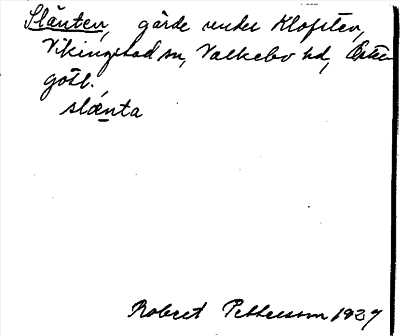 Slänten, gärde under Klofsten,
Vikingstad sn, Valkebo hd, Öster-
götl.
slǽnta
Robert Pettersson 1927